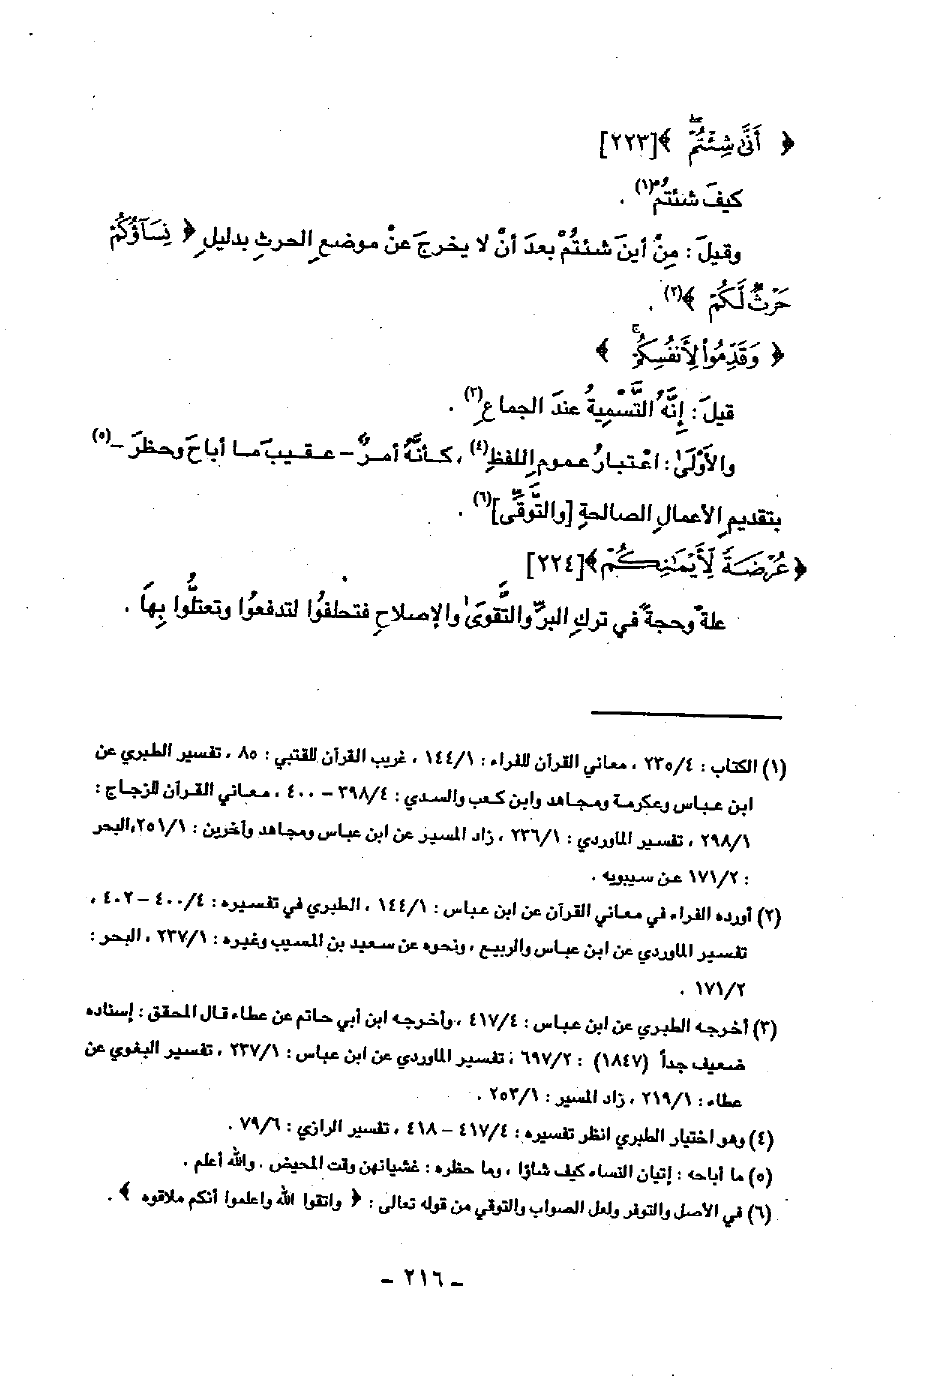 ﴿ أَنَّىٰ شِئْتُمْ ۖ ﴾[٢٢٣]
كيفَ شئتمُ(١) .
وقيلَ : مِنْ أينَ شئتُمْ بعدَ أنْ لا يخرجَ عنْ موضعِ الحرثِ بدليلِ ﴿ نِسَآؤُكُمْ
حَرْثٌ لَّكُمْ ﴾(٢) .
﴿ وَقَدِّمُوا۟ لِأَنفُسِكُمْ ۚ ﴾
قيلَ : إِنَّهُ التَّسْمِيةُ عندَ الجماعِ(٣) .
والأَوْلَىٰ : اعْتبارُ عمومِ اللفظِ(٤) ، كأنَّهُ أمرٌ – عقيبَ ما أباحَ وحظرَ –(٥)
بتقديمِ الأعمالِ الصالحةِ [والتَّوقِّي](٦) .
﴿ عُرْضَةً لِّأَيْمَٰنِكُمْ ﴾[٢٢٤]
علةً وحجةً في تركِ البرِّ والتَّقوَىٰ والإصلاحِ فتحلفُوا لتدفعُوا وتعتلُّوا بِهَا .
(١) الكتاب : ٢٣٥/٤ ، معاني القرآن للفراء : ١٤٤/١ ، غريب القرآن للقتبي : ٨٥ ، تفسير الطبري عن
ابن عباس وعكرمة ومجاهد وابن كعب والسدي : ٣٩٨/٤ – ٤٠٠ ، معاني القرآن للزجاج :
٢٩٨/١ ، تفسير الماوردي : ٢٣٦/١ ، زاد المسير عن ابن عباس ومجاهد وآخرين : ٢٥١/١،البحر
: ١٧١/٢ عن سيبويه .
(٢) أورده الفراء في معاني القرآن عن ابن عباس : ١٤٤/١ ، الطبري في تفسيره : ٤٠٠/٤ – ٤٠٢ ،
تفسير الماوردي عن ابن عباس والربيع ، ونحوه عن سعيد بن المسيب وغيره : ٢٣٧/١ ، البحر :
١٧١/٢ .
(٣) أخرجه الطبري عن ابن عباس : ٤١٧/٤ ، وأخرجه ابن أبي حاتم عن عطاء قال المحقق : إسناده
ضعيف جداً (١٨٤٧) : ٦٩٧/٢ ، تفسير الماوردي عن ابن عباس : ٢٣٧/١ ، تفسير البغوي عن
عطاء : ٢١٩/١ ، زاد المسير : ٢٥٣/١ .
(٤) وهو اختيار الطبري انظر تفسيره : ٤١٧/٤ – ٤١٨ ، تفسير الرازي : ٧٩/٦ .
(٥) ما أباحه : إتيان النساء كيف شاؤا ، وما حظره : غشيانهن وقت المحيض . والله أعلم .
(٦) في الأصل والتوفر ولعل الصواب والتوقي من قوله تعالى : ﴿ واتقوا الله واعلموا أنكم ملاقوه ﴾ .
– ٢١٦ –